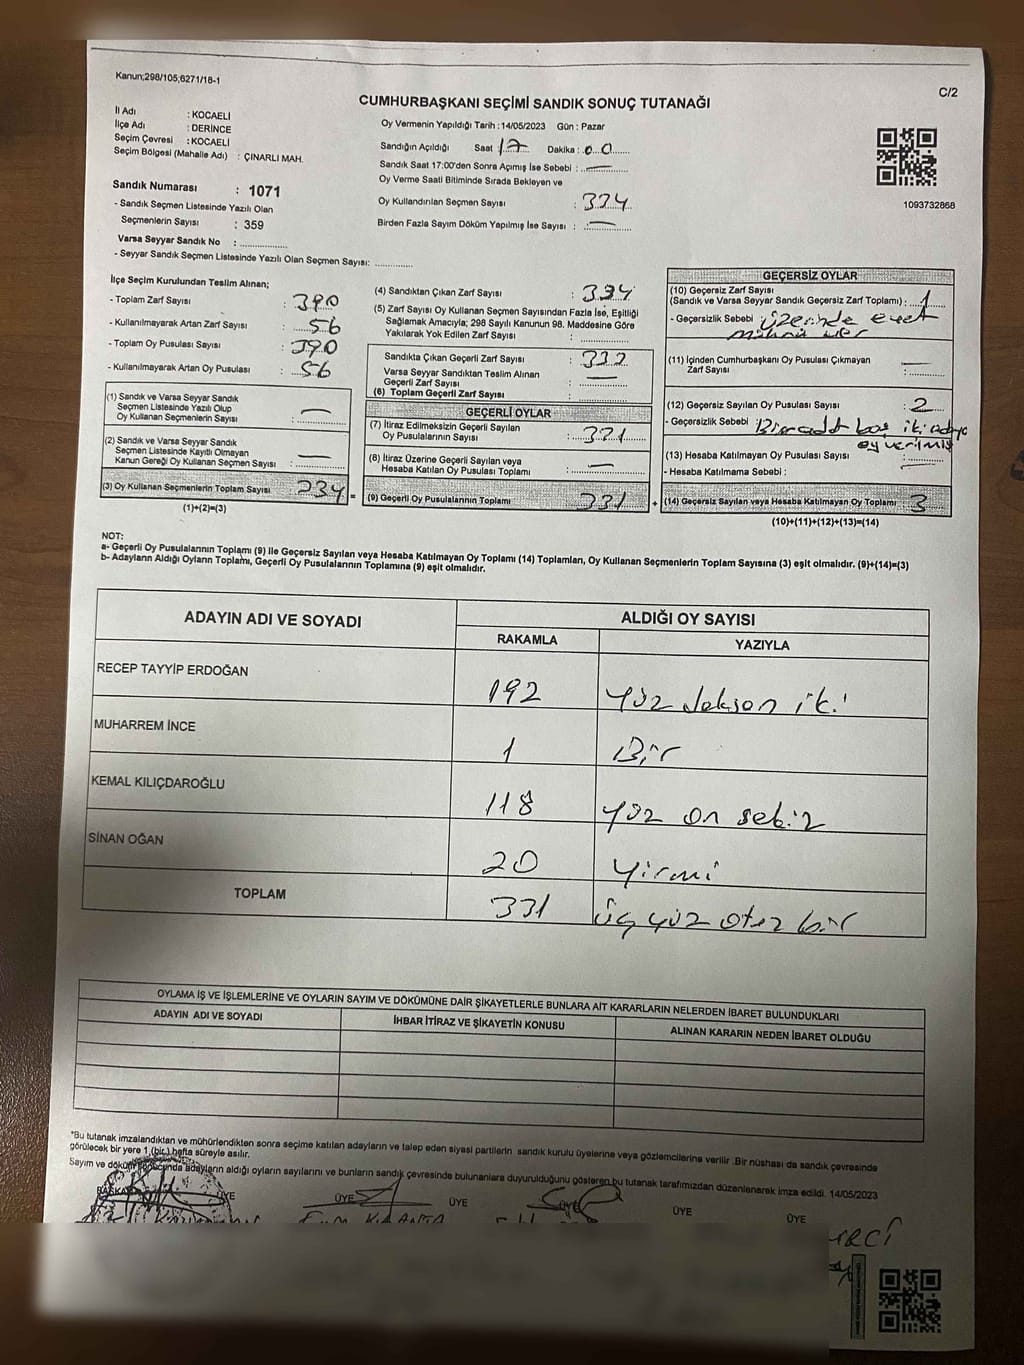 Kanun;298/105;6271/18-1
C/2
CUMHURBAŞKANI SEÇİMİ SANDIK SONUÇ TUTANAĞI
İl Adı : KOCAELİ
İlçe Adı : DERİNCE
Seçim Çevresi : KOCAELİ
Seçim Bölgesi (Mahalle Adı) : ÇINARLI MAH.
Sandık Numarası : 1071
- Sandık Seçmen Listesinde Yazılı Olan
Seçmenlerin Sayısı : 359
Varsa Seyyar Sandık No :
- Seyyar Sandık Seçmen Listesinde Yazılı Olan Seçmen Sayısı:
Oy Vermenin Yapıldığı Tarih : 14/05/2023 Gün : Pazar
Sandığın Açıldığı Saat 17 Dakika : 00
Sandık Saat 17:00'den Sonra Açımış İse Sebebi : —
Oy Verme Saati Bitiminde Sırada Bekleyen ve
Oy Kullandırılan Seçmen Sayısı : 334
Birden Fazla Sayım Döküm Yapılmış İse Sayısı : —
1093732868
İlçe Seçim Kurulundan Teslim Alınan;
- Toplam Zarf Sayısı : 390
- Kullanılmayarak Artan Zarf Sayısı : 56
- Toplam Oy Pusulası Sayısı : 390
- Kullanılmayarak Artan Oy Pusulası : 56
(1) Sandık ve Varsa Seyyar Sandık
Seçmen Listesinde Yazılı Olup
Oy Kullanan Seçmenlerin Sayısı : —
(2) Sandık ve Varsa Seyyar Sandık
Seçmen Listesinde Kayıtlı Olmayan
Kanun Gereği Oy Kullanan Seçmen Sayısı : —
(3) Oy Kullanan Seçmenlerin Toplam Sayısı 234 =
(1)+(2)=(3)
(4) Sandıktan Çıkan Zarf Sayısı : 334
(5) Zarf Sayısı Oy Kullanan Seçmen Sayısından Fazla İse, Eşitliği
Sağlamak Amacıyla; 298 Sayılı Kanunun 98. Maddesine Göre
Yakılarak Yok Edilen Zarf Sayısı :
Sandıkta Çıkan Geçerli Zarf Sayısı : 333
Varsa Seyyar Sandıktan Teslim Alınan
Geçerli Zarf Sayısı : —
(6) Toplam Geçerli Zarf Sayısı :
GEÇERLİ OYLAR
(7) İtiraz Edilmeksizin Geçerli Sayılan
Oy Pusulalarının Sayısı : 331
(8) İtiraz Üzerine Geçerli Sayılan veya
Hesaba Katılan Oy Pusulası Toplamı : —
(9) Geçerli Oy Pusulalarının Toplamı 331 +
GEÇERSİZ OYLAR
(10) Geçersiz Zarf Sayısı
(Sandık ve Varsa Seyyar Sandık Geçersiz Zarf Toplamı) : 1
- Geçersizlik Sebebi : üzerinde evet
(11) İçinden Cumhurbaşkanı Oy Pusulası Çıkmayan
Zarf Sayısı : —
(12) Geçersiz Sayılan Oy Pusulası Sayısı : 2
- Geçersizlik Sebebi Bir adet boş iki adaya
oy verilmiş
(13) Hesaba Katılmayan Oy Pusulası Sayısı : —
- Hesaba Katılmama Sebebi :
(14) Geçersiz Sayılan veya Hesaba Katılmayan Oy Toplamı : 3
(10)+(11)+(12)+(13)=(14)
NOT:
a- Geçerli Oy Pusulalarının Toplamı (9) ile Geçersiz Sayılan veya Hesaba Katılmayan Oy Toplamı (14) Toplamları, Oy Kullanan Seçmenlerin Toplam Sayısına (3) eşit olmalıdır. (9)+(14)=(3)
b- Adayların Aldığı Oyların Toplamı, Geçerli Oy Pusulalarının Toplamına (9) eşit olmalıdır.
ADAYIN ADI VE SOYADI
ALDIĞI OY SAYISI
RAKAMLA YAZIYLA
RECEP TAYYİP ERDOĞAN 192 Yüz doksan iki
MUHARREM İNCE 1 Bir
KEMAL KILIÇDAROĞLU 118 yüz on sekiz
SİNAN OĞAN 20 yirmi
TOPLAM 331 üç yüz otuz bir
OYLAMA İŞ VE İŞLEMLERİNE VE OYLARIN SAYIM VE DÖKÜMÜNE DAİR ŞİKAYETLERLE BUNLARA AİT KARARLARIN NELERDEN İBARET BULUNDUKLARI
ADAYIN ADI VE SOYADI İHBAR İTİRAZ VE ŞİKAYETİN KONUSU ALINAN KARARIN NEDEN İBARET OLDUĞU
*Bu tutanak imzalandıktan ve mühürlendikten sonra seçime katılan adayların ve talep eden siyasi partilerin sandık kurulu üyelerine veya gözlemcilerine verilir .Bir nüshası da sandık çevresinde
görülecek bir yere 1 (bir ) hafta süreyle asılır.
Sayım ve döküm sonucunda adayların aldığı oyların sayılarını ve bunların sandık çevresinde bulunanlara duyurulduğunu gösteren bu tutanak tarafımızdan düzenlenerek imza edildi. 14/05/2023
BAŞKAN ÜYE ÜYE ÜYE ÜYE ÜYE ÜYE